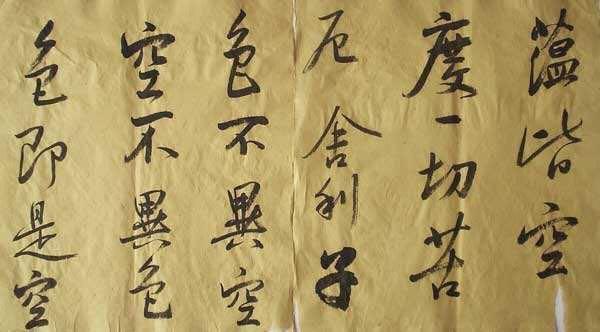 蕴皆空
度一切苦
厄舍利子
色不異空
空不異色
色即是空